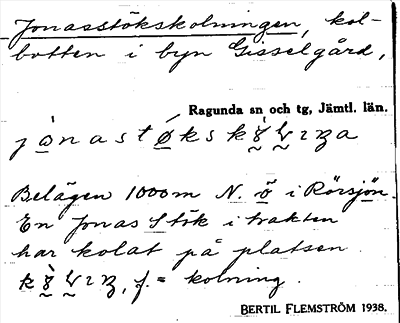 Jonasstökskolningen, kol-
botten i byn Gisselgård,
Ragunda sn och tg, Jämtl. län.
Belägen 1000 m N. ö i Rörsjön.
En Jonas Stök i trakten
har kolat på platsen.
f. = kolning.
BERTIL FLEMSTRÖM 1938.